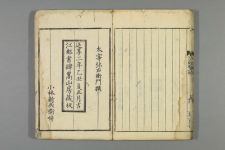 太宰弥右衛門撰
延享二年乙丑
江都書肆嵩山房藏板
小林新兵衛梓